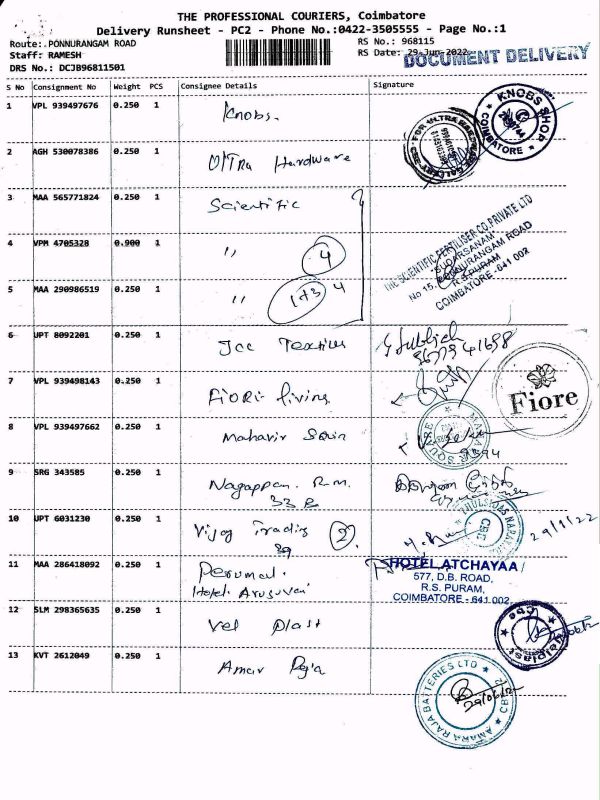 THE PROFESSIONAL COURIERS, Coimbatore
Delivery Runsheet - PC2 - Phone No.:0422-3505555 - Page No.:1
Route: PONNURANGAM ROAD
RS No.: 968115
Staff: RAMESH
RS Date: 29-Jun-2022
DOCUMENT DELIVERY
DRS No.: DCJB96811501
S No Consignment No Weight PCS Consignee Details Signature
1 VPL 939497676 0.250 1 Knobs.
KNOBS SHOP
COIMBATORE
2 AGH 530078386 0.250 1 Ultra Hardware
3 MAA 565771824 0.250 1 Scientific
THE SCIENTIFIC FERTILISER CO.PRIVATE LTD
"SUDARSANAM"
No 15, PONNURANGAM ROAD
R.S.PURAM
COIMBATORE -641 002
4 VPM 4705328 0.900 1 " 4
5 MAA 290986519 0.250 1 "
6 UPT 8092201 0.250 1 Jcc Textiles
7 VPL 939498143 0.250 1 Fiori living
Fiore
8 VPL 939497662 0.250 1 Mahavir
MAHAVIR SQUARE
9 SRG 343585 0.250 1 Nagappan. R.m.
10 UPT 6031230 0.250 1 Vijay Trading 2
CBE
29/6/22
11 MAA 286418092 0.250 1 Perumal.
Hotel Arusuvai
HOTEL ATCHAYAA
577, D.B. ROAD,
R.S. PURAM,
COIMBATORE - 641 002
12 SLM 298365635 0.250 1 Vel Plast
13 KVT 2612049 0.250 1 Amar Raja
AMARA RAJA BATTERIES LTD
29/06/22